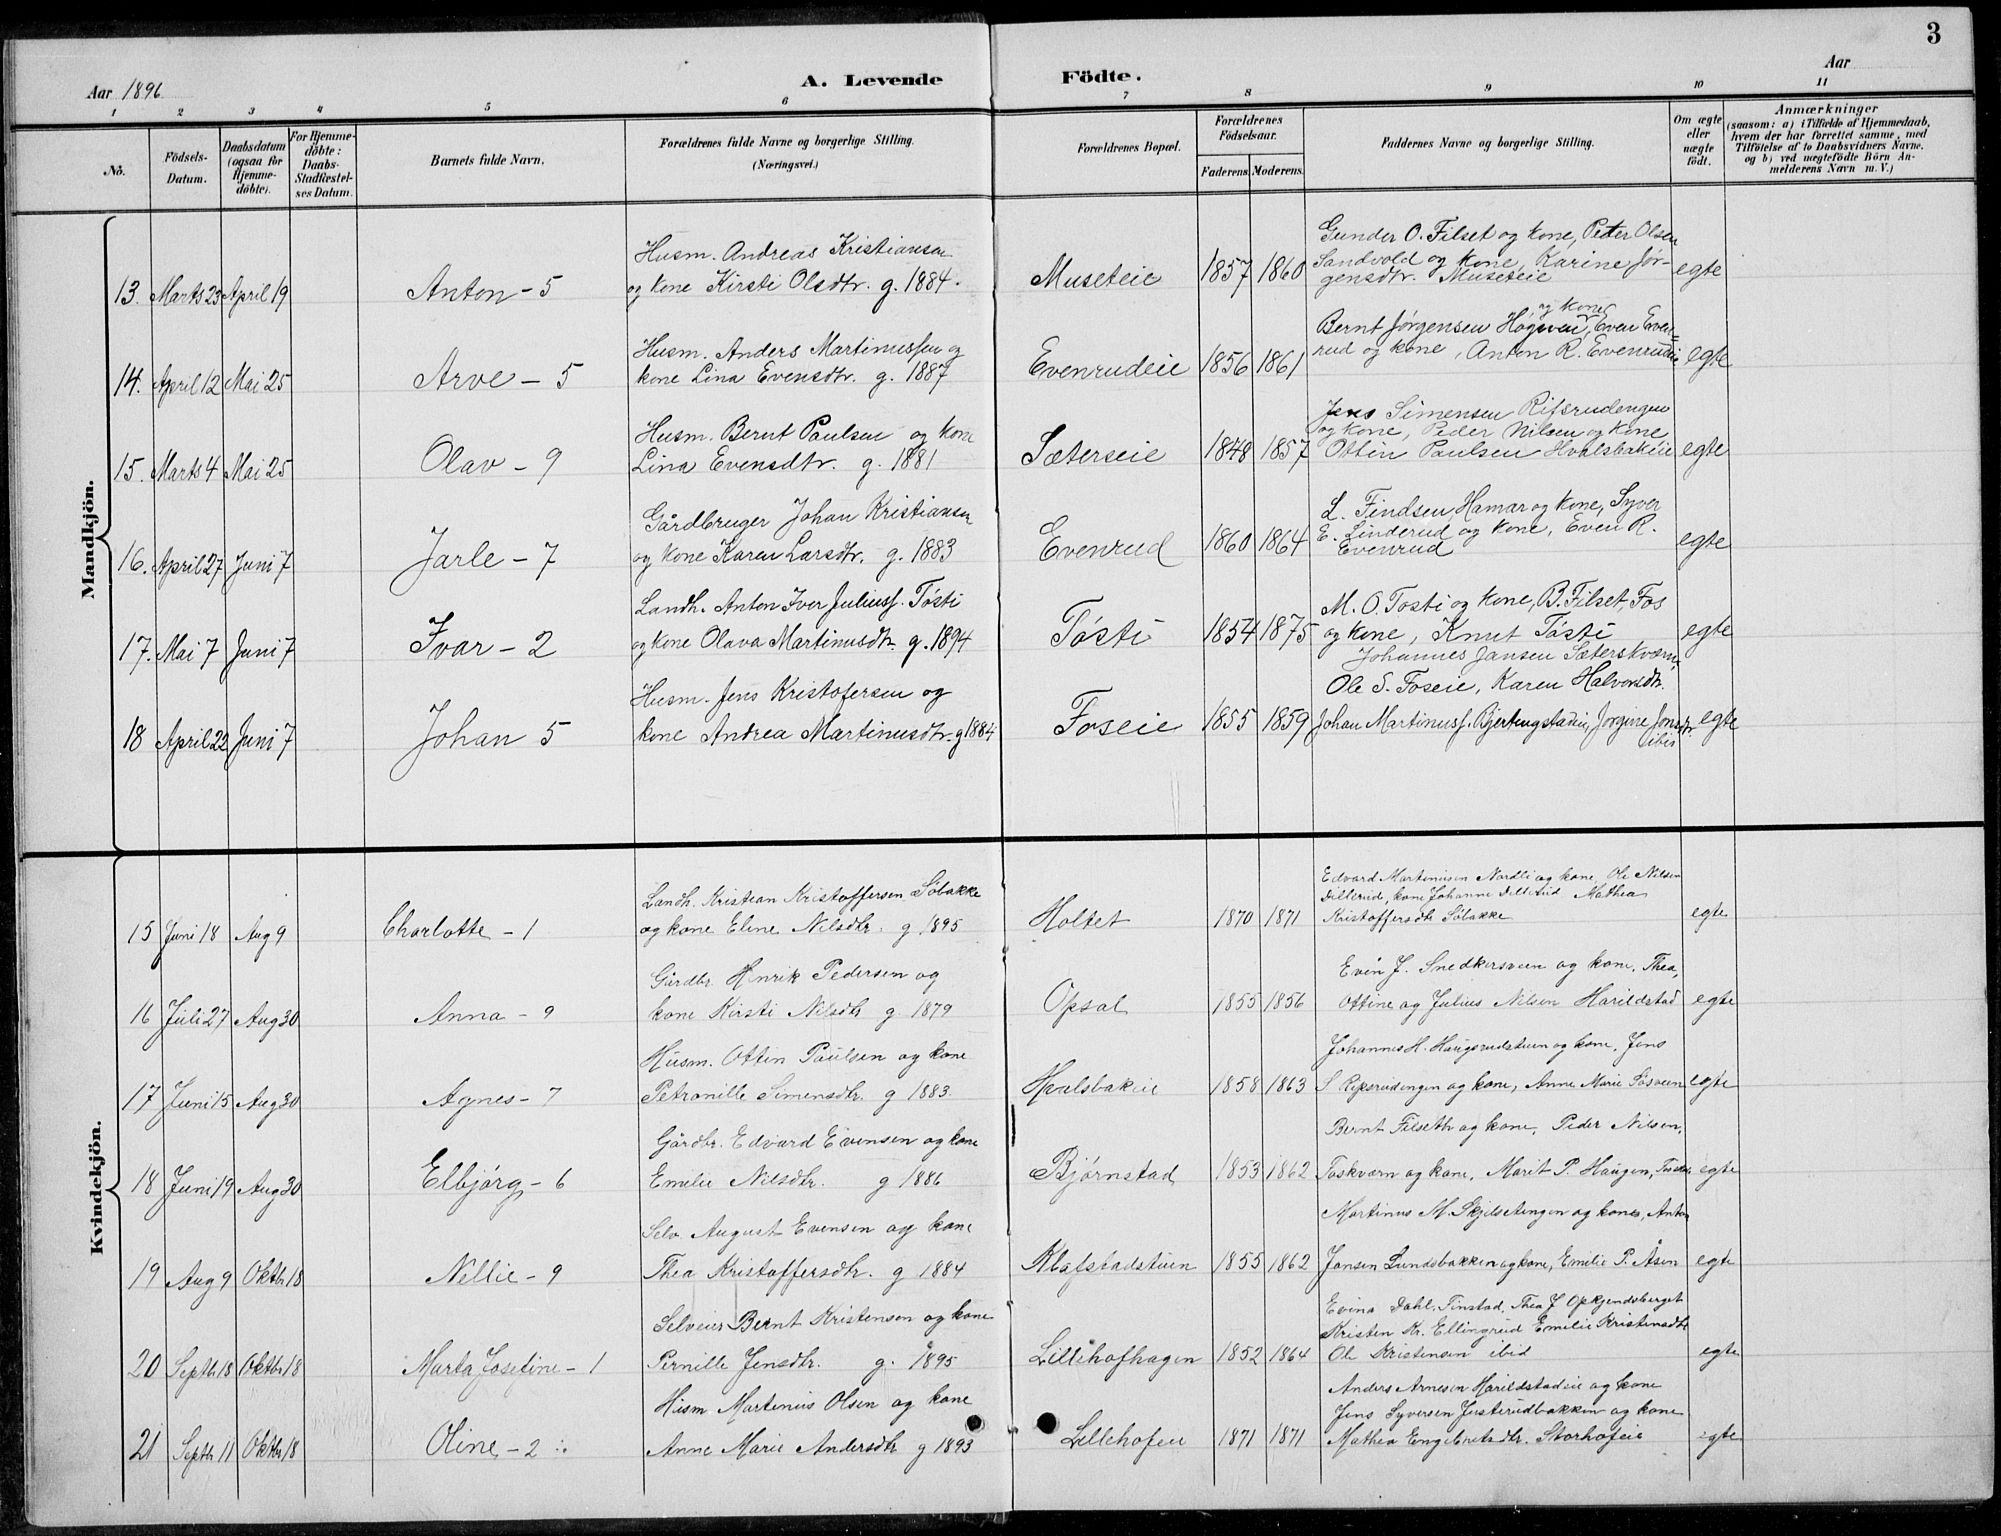 3
Aar 1896.
A. Levende Födte.
Aar
1 2 3 4 5 6 7 8 9 10 11
No.
Födsels-Datum.
Daabsdatum (ogsaa for Hjemme-döbte).
For Hjemme-döbte: Daabs-Stadfæstel-ses Datum.
Barnets fulde Navn.
Forældrenes fulde Navne og borgerlige Stilling.
(Næringsvei.)
Forældrenes Bopæl.
Forældrenes Födselsaar.
Faderens. Moderens.
Faddernes Navne og borgerlige Stilling.
Om ægte eller uægte födt.
Anmærkninger
(saasom: a) i Tilfælde af Hjemmedaab, hvem der har forrettet samme, med Tilföielse af to Daabsvidners Navne, og b) ved uægtefödte Börn An-melderens Navn m. V.)
Mandkjön.
13. Marts 23 April 19 Anton - 5
Husm. Andreas Kristiansen
og kone Kirsti Olsdtr. g. 1884.
Museteie 1857 1860
Gunder O. Filset og kone, Peter Olsen
Sandvold og kone, Karine Jør-
gensdtr. Museteie
egte
14. April 12 Mai 25 Arve - 5
Husm. Anders Martinussen og
kone Lina Evensdtr. g. 1887
Evenrudeie 1856 1861
og kone
Bernt Jørgensen Høgveen, Even Even-
rud og kone, Anton R. Evenrudeie
egte
15. Marts 4 Mai 25 Olav - 9
Husm. Bernt Paulsen og kone
Lina Evensdtr. g. 1881
Sæterseie 1848 1857
Jens Simensen Rifsrudengen
og kone, Peder Nilsen og kone
Ottin Paulsen Hvalsbakeie
egte
16. April 27 Juni 7 Jarle - 7
Gårdbruger Johan Kristiansen
og kone Karen Larsdtr. g. 1883
Evenrud 1860 1864
L. Findsen Hamar og kone, Syver
E. Linderud og kone, Even R.
Evenrud
egte
17. Mai 7 Juni 7 Ivar - 2
Landh. Anton Iver Juliusf. Tøsti
og kone Olava Martinusdtr. g. 1894
Tøsti 1854 1875
M. O. Tosti og kone, B. Filset, Fos
og kone, Knut Tøsti
egte
18 April 22 Juni 7 Johan 5
Husm. Jens Kristofersen og
kone Andrea Martinusdtr. g 1884
Foseie 1855 1859
Johannes Jansen Sæterskværn,
Ole S. Foseie, Karen Halvorsdtr.
Johan Martinusf. Bjertngstadeie, Jørgine Jonsdtr.
ibid
egte
Kvindekjön.
15 Juni 18 Aug 9 Charlotte - 1
Landh. Kristian Kristoffersen Søbakke
og kone Eline Nilsdtr. g. 1895
Holtet 1870 1871
Edvard Martinusen Nordli og kone, Ole Nilsen
Dillerud, kone Johanne Dillerud Mathea
Kristoffersdtr Søbakke
egte
16 Juli 27 Aug 30 Anna - 9
Gårdbr. Henrik Pedersen og
kone Kirsti Nilsdtr g. 1879
Opsal 1855 1856
Even J. Snedkersveen og kone, Thea,
Ottine og Julius Nilsen Harildstad
egte
17 Juni 15 Aug 30 Agnes - 7
Husm. Ottin Paulsen og kone
Petronille Simensdtr. g 1883.
Hvalsbakeie 1858 1863
Johannes H. Haugsrudstuen og kone, Jens
S Ripsrudengen og kone, Anne Marie Søsveen
egte
18 Juni 19 Aug 30 Elbjørg - 6
Gårdbr. Edvard Evensen og kone
Emilie Nilsdtr. g 1886
Bjørnstad 1853 1862
Bernt Filseth og kone, Peder Nilsen,
Foskværn og kone, Marit P. Haugen,
egte
19 Aug 9 Oktb 18 Nellie - 9
Selv. August Evensen og kone
Thea Kristoffersdtr. g 1884
Klafstadstuen 1855 1862
Martinus M. Skjelsetengen og kone, Anton
Jansen Lundsbakken og kone, Emilie P. Åsen
egte
20 Septb 18 Oktb 18 Marta Josefine - 1
Selveier Bernt Kristensen og kone
Pernille Jensdtr. g. 1895
Lillehofhagen 1852 1864
Evina Dahl, Finstad, Thea J Opkjendsberget
Kristen Kr. Ellingrud Emilie Kristensdtr
Ole Kristensen ibid
egte
21 Septb 11 Oktb 18 Oline - 2
Husm Martinius Olsen og kone
Anne Marie Andersdtr g 1893
Lillehofeie 1871 1871
Anders Arnesen Harildstadeie og kone
Jens Syversen Justerudbakken og kone
Mathea Engebretsdtr. Storhofeie
egte